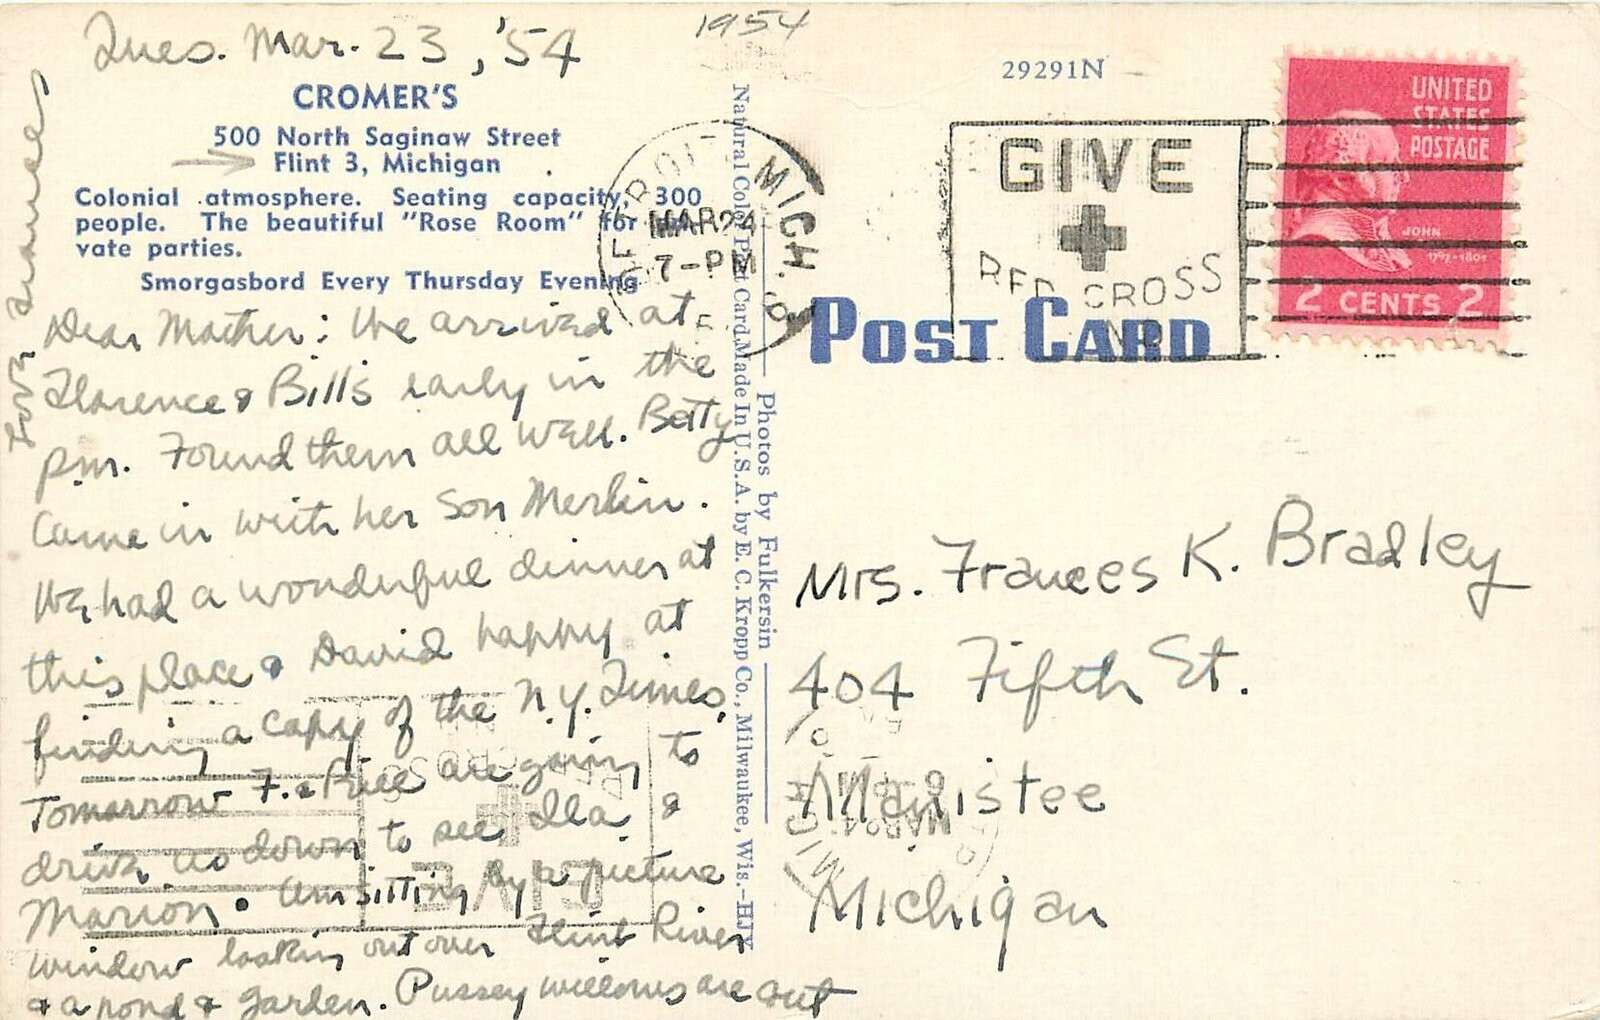 1954
Tues. Mar. 23, '54
CROMER'S
500 North Saginaw Street
Flint 3, Michigan
Colonial atmosphere. Seating capacity, 300
people. The beautiful "Rose Room" for
vate parties.
Smorgasbord Every Thursday Evening
Dear Mother: We arrived at
Florence & Bill's early in the
p.m. Found them all well. Betty
came in with her son Merlin.
We had a wonderful dinner at
this place & David happy at
finding a copy of the N.Y. Times.
Tomorrow F. & Bill are going to
drive us down to see Ila &
Marion. Am sitting by a picture
window looking out over Flint River
& a pond & garden. Pussey willows are out
Love Frances
Natural Color Post Card Made In U.S.A. by E. C. Kropp Co., Milwaukee, Wis.-HJY
Photos by Fulkersin
29291N
DETROIT MICH.
MAR 24
7-PM
GIVE
RED CROSS
UNITED
STATES
POSTAGE
JOHN
2 CENTS 2
POST CARD
Mrs. Frances K. Bradley
404 Fifth St.
Manistee
Michigan
RED CROSS
GIVE
MAR 24
MICH